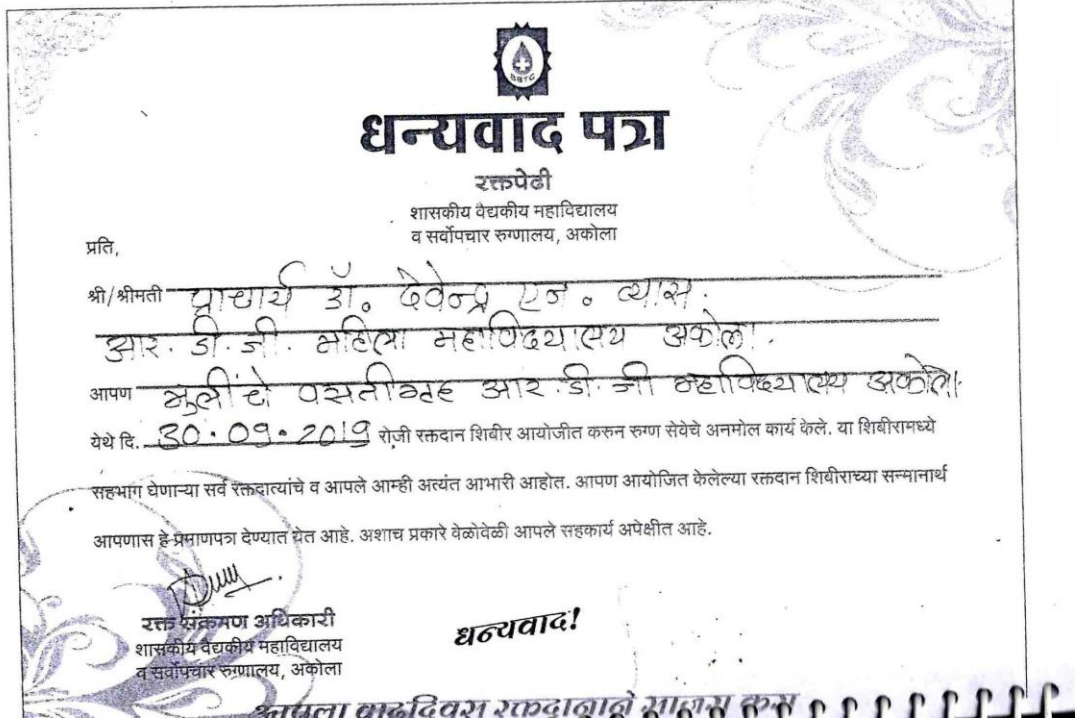 SBTC
धन्यवाद पत्र
रक्तपेढी
शासकीय वैद्यकीय महाविद्यालय
व सर्वोपचार रुग्णालय, अकोला
प्रति,
श्री/श्रीमती प्राचार्य डॉ. देवेन्द्र एन. व्यास.
आर. डी. जी. महिला महाविद्यालय अकोला.
आपण मुलींचे वसतीगृह आर. डी. जी महाविद्यालय अकोला.
येथे दि. 30.09.2019 रोजी रक्तदान शिबीर आयोजीत करुन रुग्ण सेवेचे अनमोल कार्य केले. या शिबीरामध्ये
सहभाग घेणाऱ्या सर्व रक्तदात्यांचे व आपले आम्ही अत्यंत आभारी आहोत. आपण आयोजित केलेल्या रक्तदान शिबीराच्या सन्मानार्थ
आपणास हे प्रमाणपत्र देण्यात येत आहे. अशाच प्रकारे वेळोवेळी आपले सहकार्य अपेक्षीत आहे.
रक्त संक्रमण अधिकारी
शासकीय वैद्यकीय महाविद्यालय
व सर्वोपचार रुग्णालय, अकोला
धन्यवाद!
आपला वाढदिवस रक्तदानाने साजरा करा